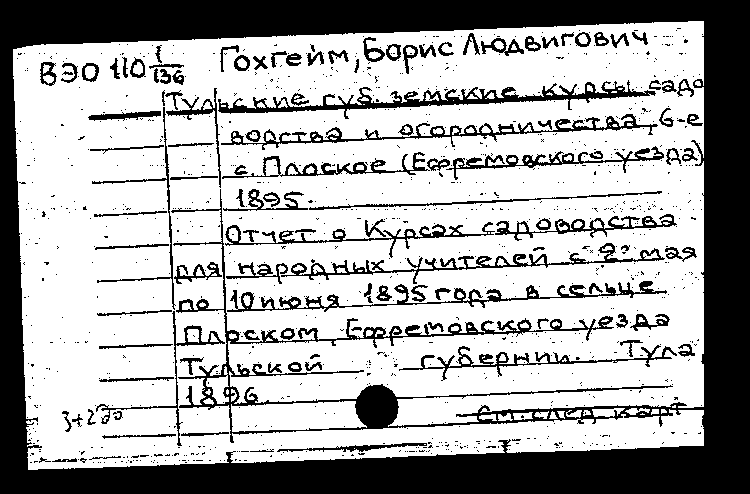 ВЭО 110 1/136 Гохгейм, Борис Людвигович
Тульские губ. земские курсы садо
водства и огородничества, 6-е
с. Плоское (Ефремовского уезда)
1895.
Отчет о Курсах садоводства
для народных учителей с 2го мая
по 10 июня 1895 года в сельце
Плоском, Ефремовского уезда
Тульской губернии. Тула,
1896.
См. след. карт